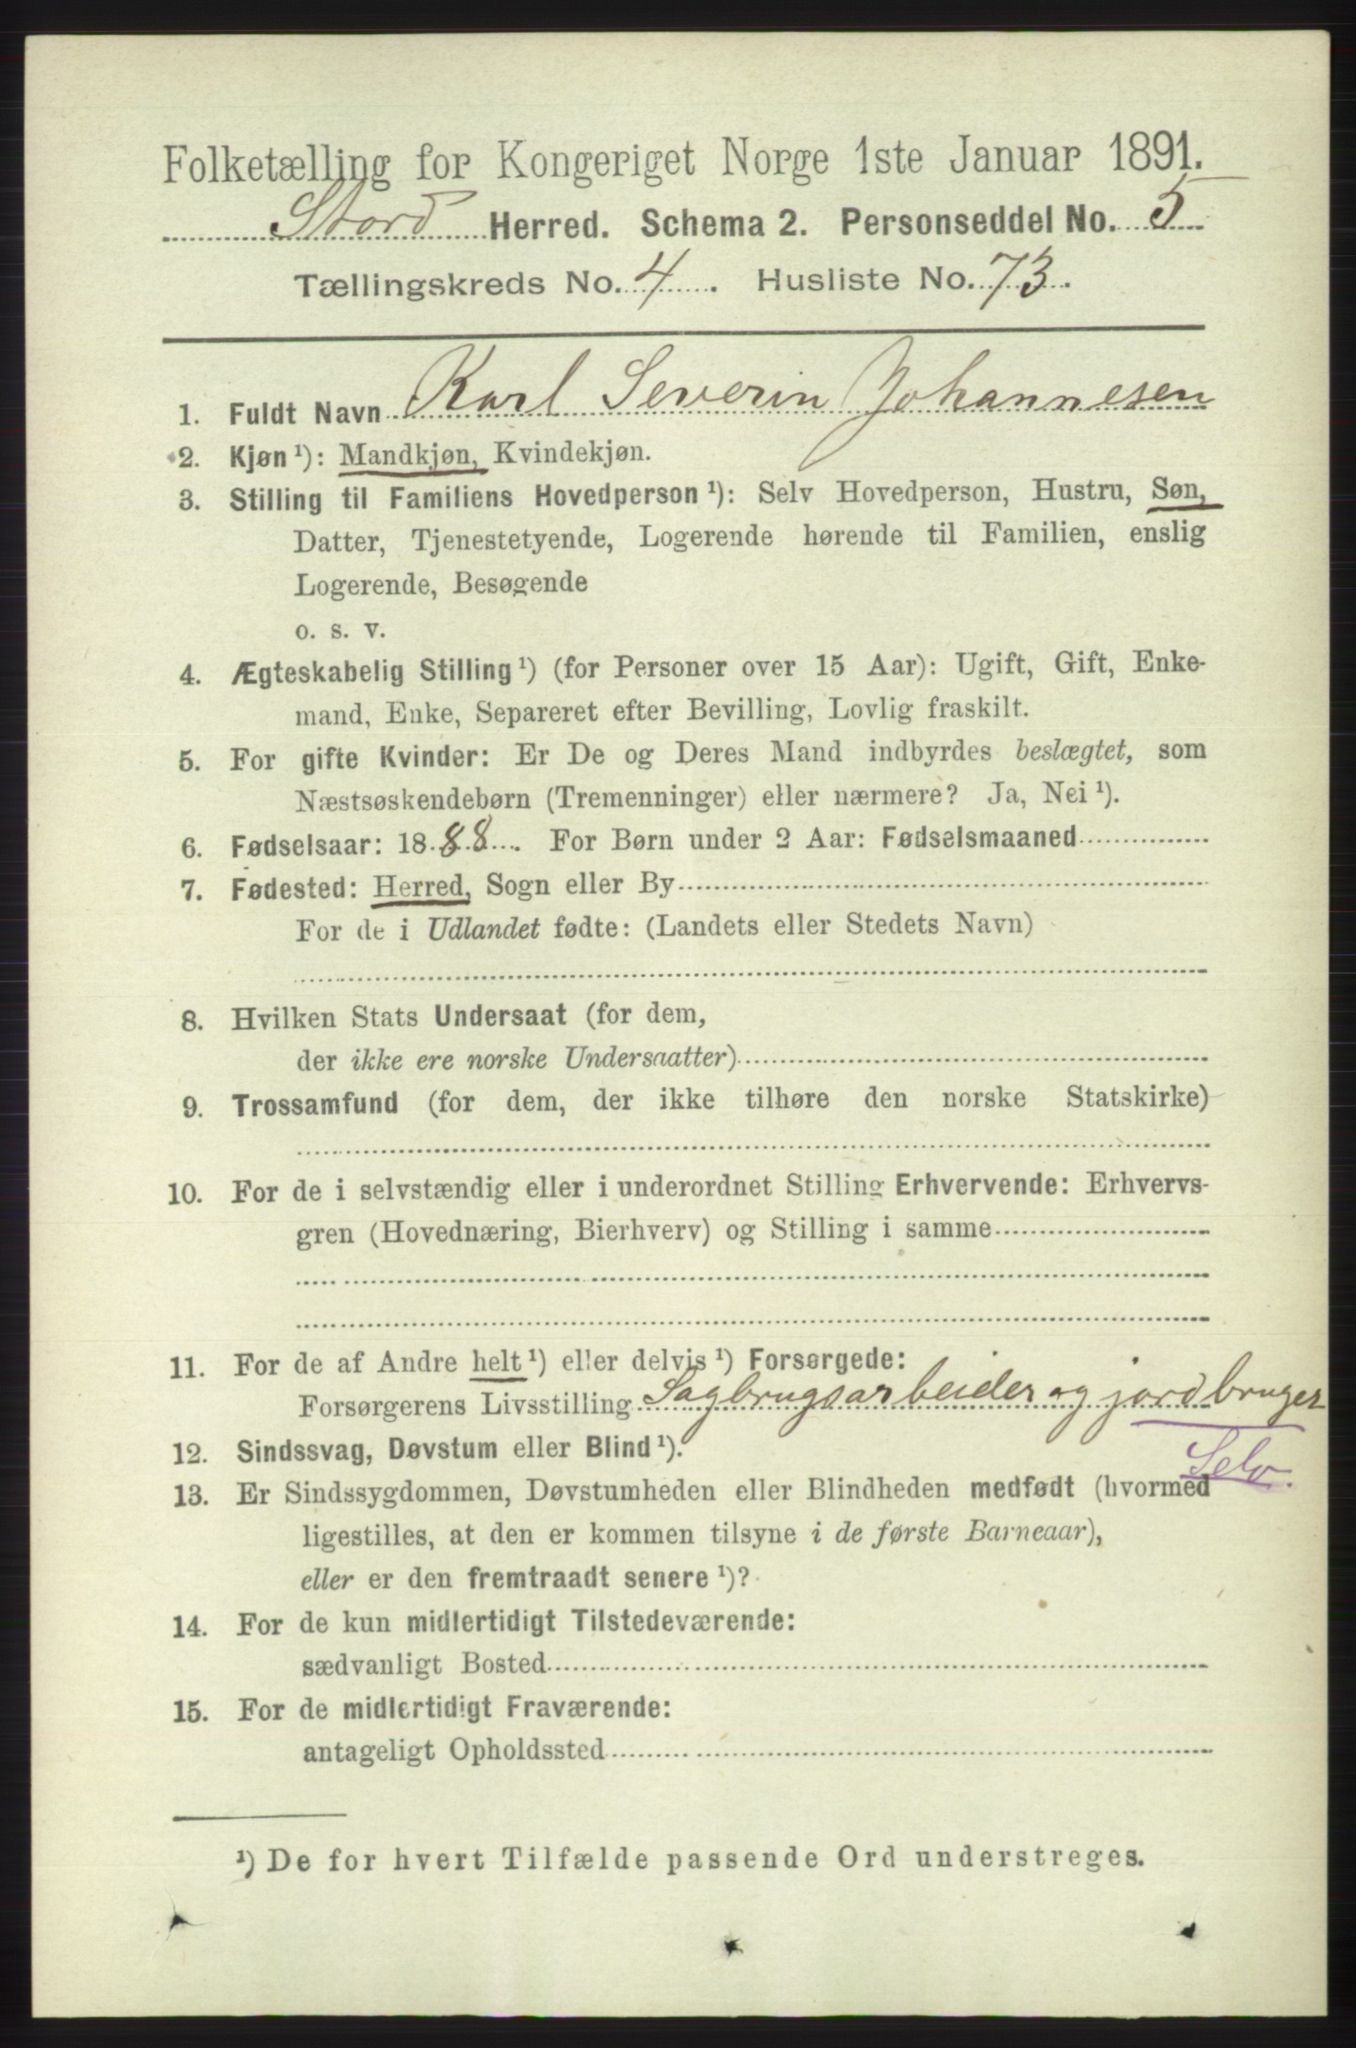 Folketælling for Kongeriget Norge 1ste Januar 1891.
Stord Herred. Schema 2. Personseddel No. 5
Tællingskreds No. 4. Husliste No. 73.
1. Fuldt Navn Karl Severin Johannesen
2. Kjøn ¹): Mandkjøn, Kvindekjøn.
3. Stilling til Familiens Hovedperson ¹): Selv Hovedperson, Hustru, Søn,
Datter, Tjenestetyende, Logerende hørende til Familien, enslig
Logerende, Besøgende
o. s. v.
4. Ægteskabelig Stilling ¹) (for Personer over 15 Aar): Ugift, Gift, Enke-
mand, Enke, Separeret efter Bevilling, Lovlig fraskilt.
5. For gifte Kvinder: Er De og Deres Mand indbyrdes beslægtet, som
Næstsøskendebørn (Tremenninger) eller nærmere? Ja, Nei ¹).
6. Fødselsaar: 1888. For Børn under 2 Aar: Fødselsmaaned
7. Fødested: Herred, Sogn eller By
For de i Udlandet fødte: (Landets eller Stedets Navn)
8. Hvilken Stats Undersaat (for dem,
der ikke ere norske Undersaatter)
9. Trossamfund (for dem, der ikke tilhøre den norske Statskirke)
10. For de i selvstændig eller i underordnet Stilling Erhvervende: Erhvervs-
gren (Hovednæring, Bierhverv) og Stilling i samme
11. For de af Andre helt ¹) eller delvis ¹) Forsørgede:
Forsørgerens Livsstilling Sagbrugsarbeider og jordbruger
Selv.
12. Sindssvag, Døvstum eller Blind ¹).
13. Er Sindssygdommen, Døvstumheden eller Blindheden medfødt (hvormed
ligestilles, at den er kommen tilsyne i de første Barneaar),
eller er den fremtraadt senere ¹)?
14. For de kun midlertidigt Tilstedeværende:
sædvanligt Bosted
15. For de midlertidigt Fraværende:
antageligt Opholdssted
¹) De for hvert Tilfælde passende Ord understreges.